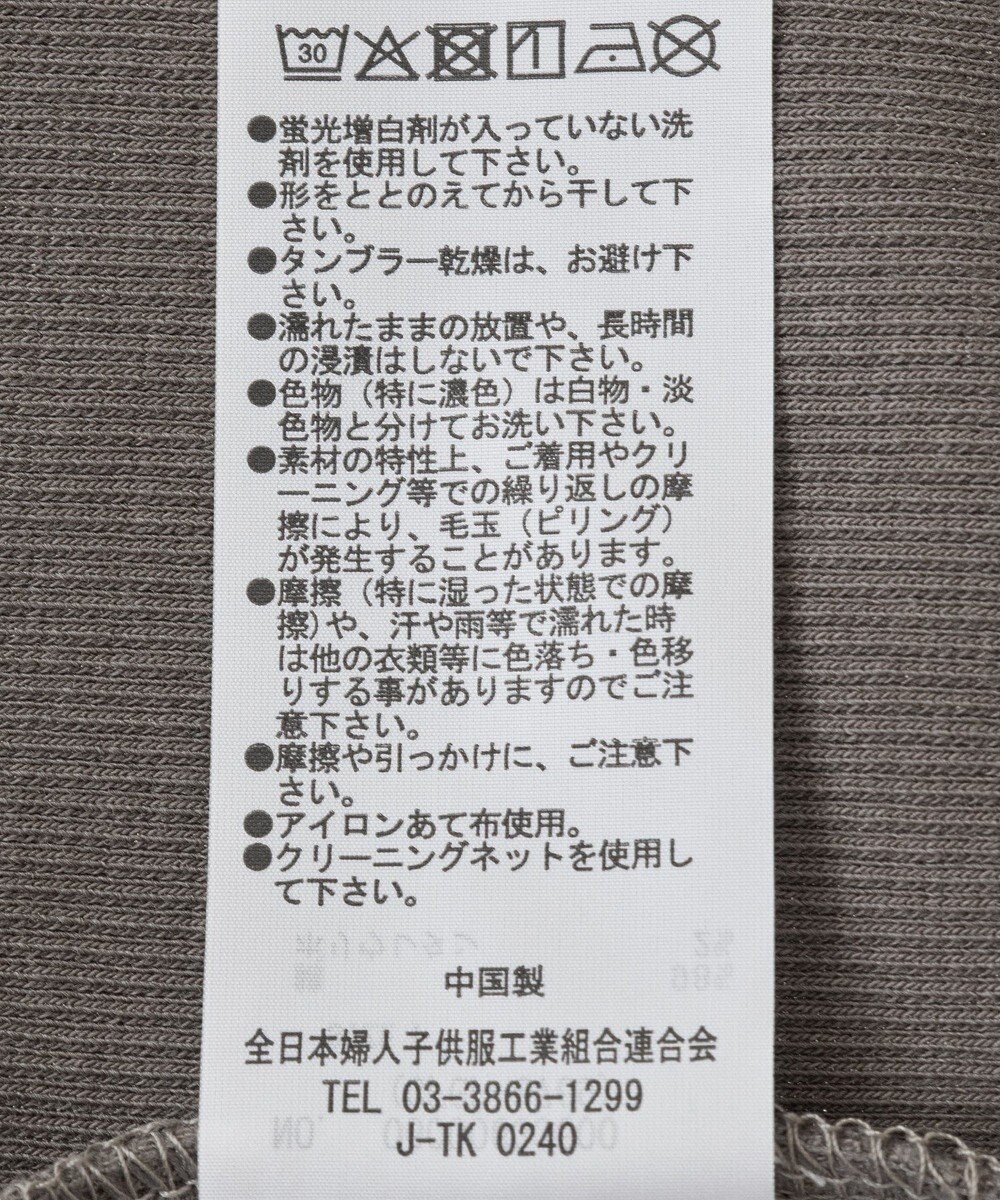 30
●蛍光増白剤が入っていない洗
剤を使用して下さい。
●形をととのえてから干して下
さい。
●タンブラー乾燥は、お避け下
さい。
●濡れたままの放置や、長時間
の浸漬はしないで下さい。
●色物（特に濃色）は白物・淡
色物と分けてお洗い下さい。
●素材の特性上、ご着用やクリ
ーニング等での繰り返しの摩
擦により、毛玉（ピリング）
が発生することがあります。
●摩擦（特に湿った状態での摩
擦)や、汗や雨等で濡れた時
は他の衣類等に色落ち・色移
りする事がありますのでご注
意下さい。
●摩擦や引っかけに、ご注意下
さい。
●アイロンあて布使用。
●クリーニングネットを使用し
て下さい。
中国製
全日本婦人子供服工業組合連合会
TEL 03-3866-1299
J-TK 0240